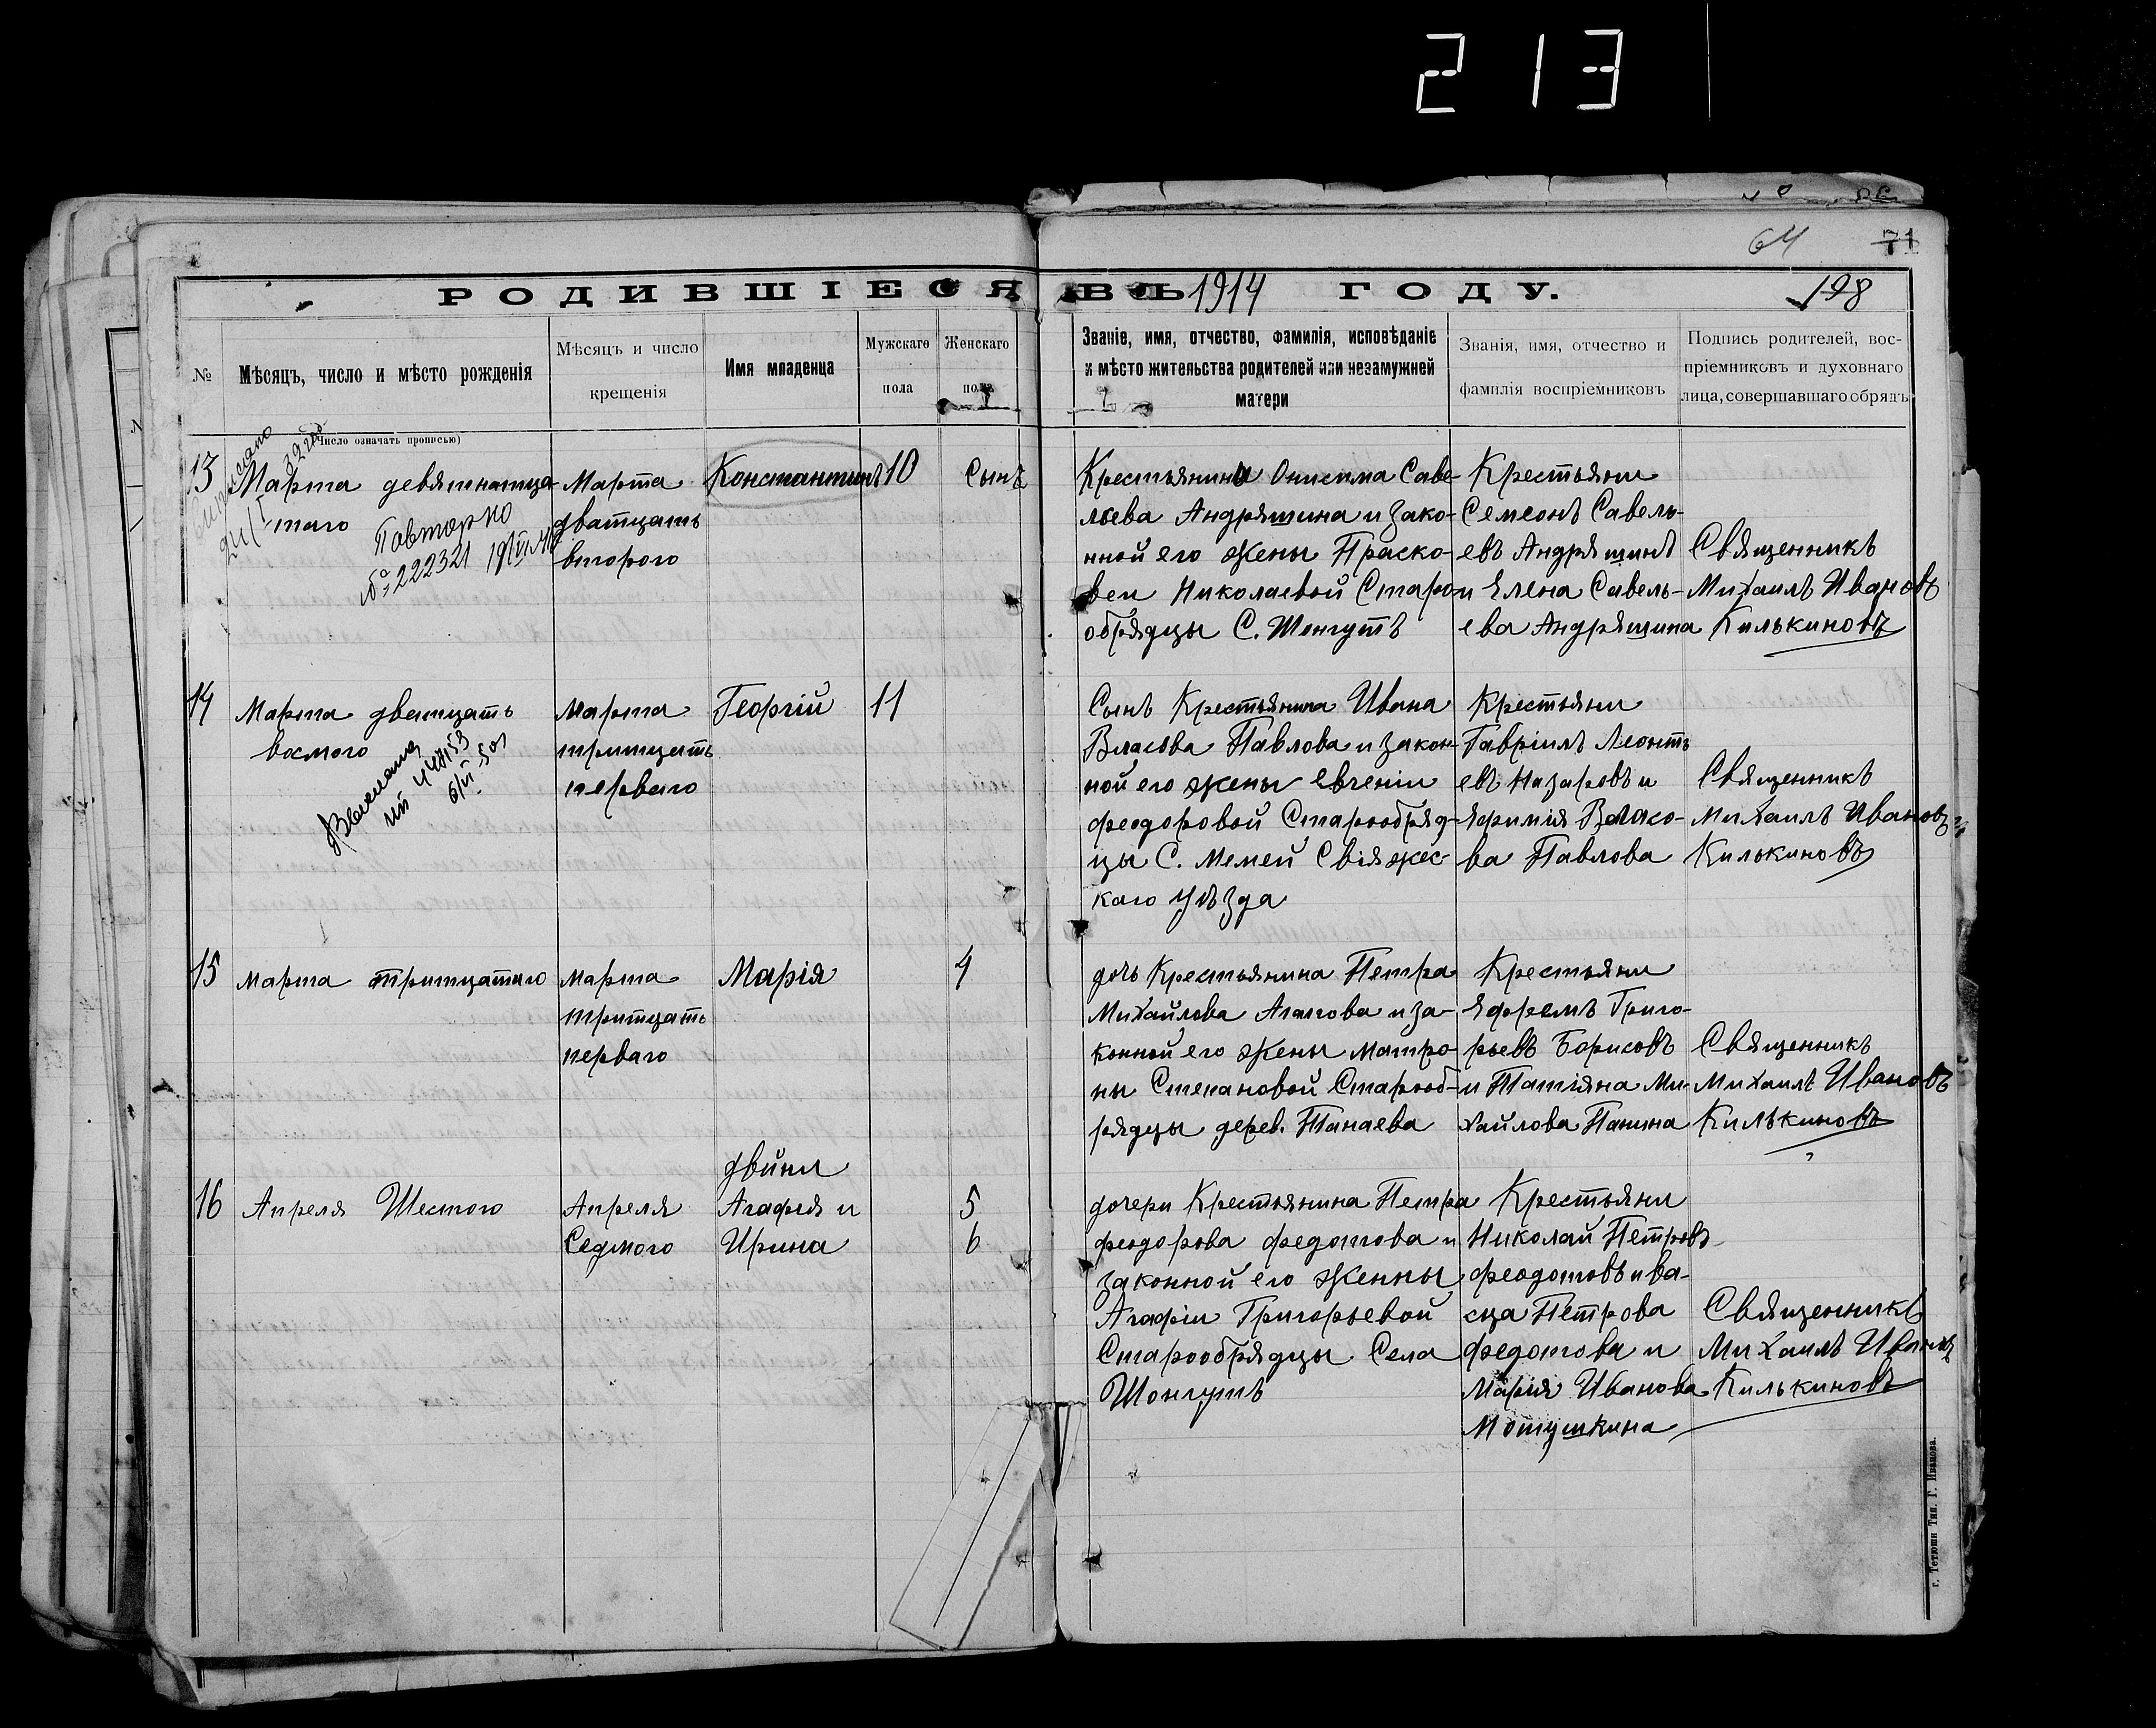 213
64 71
РОДИВШІЕСЯ ВЪ 1914 ГОДУ. 198
№
Мѣсяцъ, число и мѣсто рожденія
(Число означать прописью)
Мѣсяцъ и число
крещенія
Имя младенца
Мужскаго
пола
Женскаго
пола
Званіе, имя, отчество, фамилія, исповѣданіе
и мѣсто жительства родителей или незамужней
матери
Званія, имя, отчество и
фамилія воспріемниковъ
Подпись родителей, вос-
пріемниковъ и духовнаго
лица, совершавшаго обрядъ
13
Марта девятнатца-
таго
Повторно
№ 222321
Марта
дватцать
второго
Константинъ
10
Сынъ
Крестьянина Онисима Саве-
льева Андряшина и зако-
нной его жены Праско-
веи Николаевой Старо-
обрядцы С. Шонгутъ
Крестьяни
Семеонъ Савель-
евъ Андряшинъ
и Елена Савель-
ева Андряшина
Священникъ
Михаилъ Ивановъ
Килькиновъ
14
Марта дватцать
восмого
Марта
тритцать
перваго
Георгій
11
Сынъ Крестьянина Ивана
Власова Павлова и закон-
ной его жены Евгеніи
феодоровой Старообряд-
цы С. Мемей Свіяжес-
каго уѣзда
Крестьяни
Гавріилъ Леонть
евъ Назаровъ и
Яфимія Власо-
ва Павлова
Священникъ
Михаилъ Ивановъ
Килькиновъ
15
Марта тритцатаго
Марта
тритцать
перваго
Марія
4
дочь Крестьянина Петра
Михайлова Агапова и за-
конной его жены Матро-
ны Степановой Старооб-
рядцы дерев. Танаева
Крестьяни
Яфремъ Григо-
рьевъ Борисовъ
и Татіяна Ми-
хайлова Панина
Священникъ
Михаилъ Ивановъ
Килькиновъ
16
Апреля Шестого
Апреля
Седмого
двйни
Агафія и
Ирина
5
6
дочери Крестьянина Петра
феодорова федотова и
законной его Женны
Агафіи Григорьевой
Старообрядцы Села
Шонгутъ
Крестьяни
Николай Петровъ
феодотовъ и Ва-
сца Петрова
федотова и
Марія Иванова
Мотушкина
Священникъ
Михаилъ Ивановъ
Килькиновъ
г. Тетюши Тип. Г. Иванова.